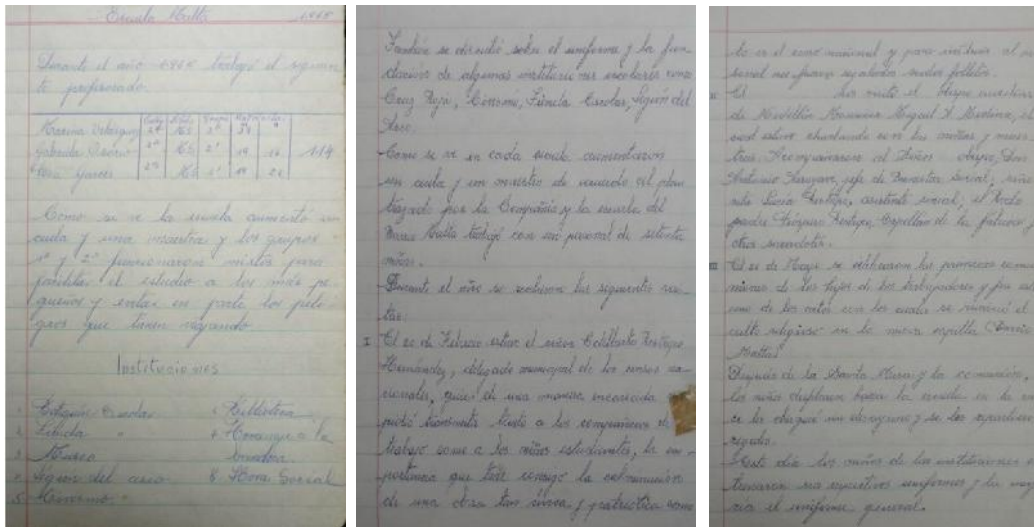 Escuela Matta 1.965
Durante el año 1.965 trabajó el siguien
te profesorado.
Marina Velásquez 2º
Gabriela Osorio 2º
Garcés 2º 114
Como se ve la escuela aumentó un
aula y una maestra y los grupos
1º y 2º funcionaron mixtos para
facilitar el estudio a los más pe
queños y evitar en parte los peli
gros que tienen viajando.
Instituciones
1. Botiquín Escolar 6. Biblioteca
2. Tienda " 7. Homenaje a la
3. Museo bandera
4. Legión del aseo 8. Hora Social
5. 
También se discutió sobre el uniforme y la fun
dación de algunas instituciones escolares como
Cruz Roja, Tienda Escolar, Legión del
Aseo.
Como se ve en cada escuela aumentaron
un aula y un maestro de acuerdo al plan
trazado por la Compañía y la escuela del
Matta trabajó con un personal de setenta
niños.
Durante el año se recibieron las siguientes visi
tas:
I El 20 de Febrero estuvo el señor Restrepo
Hernández, delegado municipal de los censos na
cionales, quien de una manera
tanto a los compañeros de
trabajo como a los niños estudiantes, la im
portancia que trae consigo la culminación
de una obra tan cívica y patriótica como
lo es el censo nacional y para instruir al per
sonal nos sendos folletos.
II El nos visitó el obispo auxiliar
de Medellín Monseñor Miguel A Medina, el
cual estuvo charlando con los niños y maes
tros. Acompañaron al señor obispo, Don
Antonio jefe de Bienestar Social, seño
rita Lucía Restrepo, asistente social, el Rvdo
padre Restrepo, Capellán de la y
otro sacerdote.
III El 20 de Mayo se celebraron las primeras comu
niones de los hijos de los trabajadores y fue
uno de los actos con los cuales se el
culto religioso en la nueva capilla
Matta"
Después de la Santa Misa y la comunión,
los niños desfilaron hacia la escuela en la
se les obsequió un desayuno y se les repartieron
regalos.
Este día los niños de las instituciones
sus respectivos uniformes y la may
ría el uniforme general.